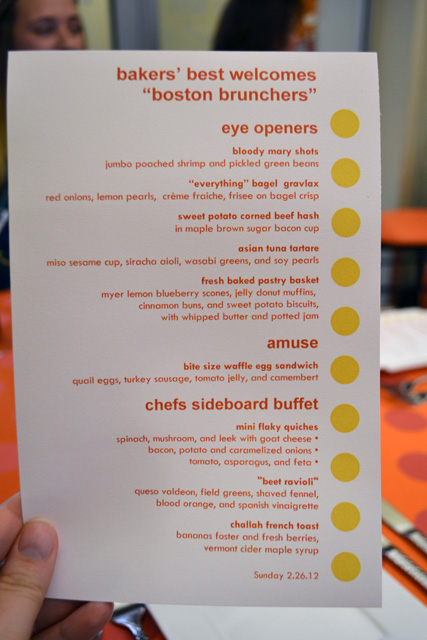 bakers' best welcomes
"boston brunchers"
eye openers
bloody mary shots
jumbo poached shrimp and pickled green beans
"everything" bagel gravlax
red onions, lemon pearls, crème fraiche, frisee on bagel crisp
sweet potato corned beef hash
in maple brown sugar bacon cup
asian tuna tartare
miso sesame cup, siracha aioli, wasabi greens, and soy pearls
fresh baked pastry basket
myer lemon blueberry scones, jelly donut muffins,
cinnamon buns, and sweet potato biscuits,
with whipped butter and potted jam
amuse
bite size waffle egg sandwich
quail eggs, turkey sausage, tomato jelly, and camembert
chefs sideboard buffet
mini flaky quiches
spinach, mushroom, and leek with goat cheese •
bacon, potato and caramelized onions •
tomato, asparagus, and feta •
"beet ravioli"
queso valdeon, field greens, shaved fennel,
blood orange, and spanish vinaigrette
challah french toast
bananas foster and fresh berries,
vermont cider maple syrup
Sunday 2.26.12